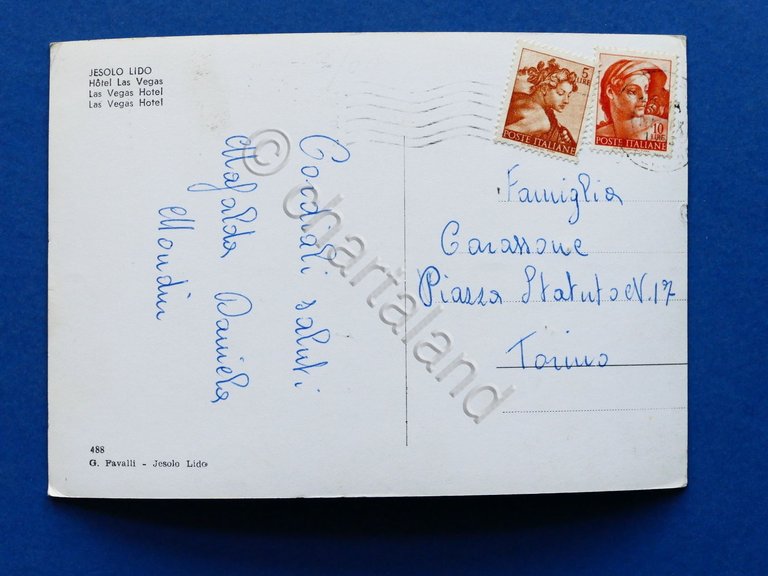 JESOLO LIDO
Hôtel Las Vegas
Las Vegas Hotel
Las Vegas Hotel
5
LIRE
POSTE ITALIANE
10
LIRE
POSTE ITALIANE
Cordiali saluti
Mafalda Daniela
Mondin
Famiglia
Carassone
Piazza Statuto N. 17
Torino
488
G. Favalli - Jesolo Lido
© chartaland